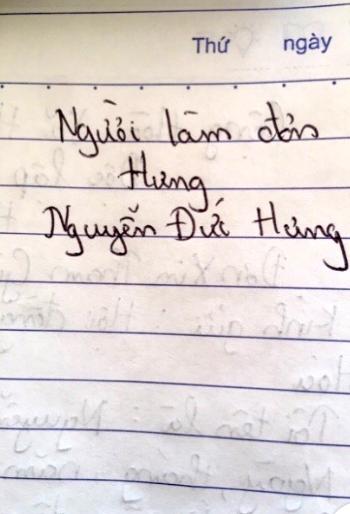 Thứ ngày
Người làm đơn
Hưng
Nguyễn Đức Hưng